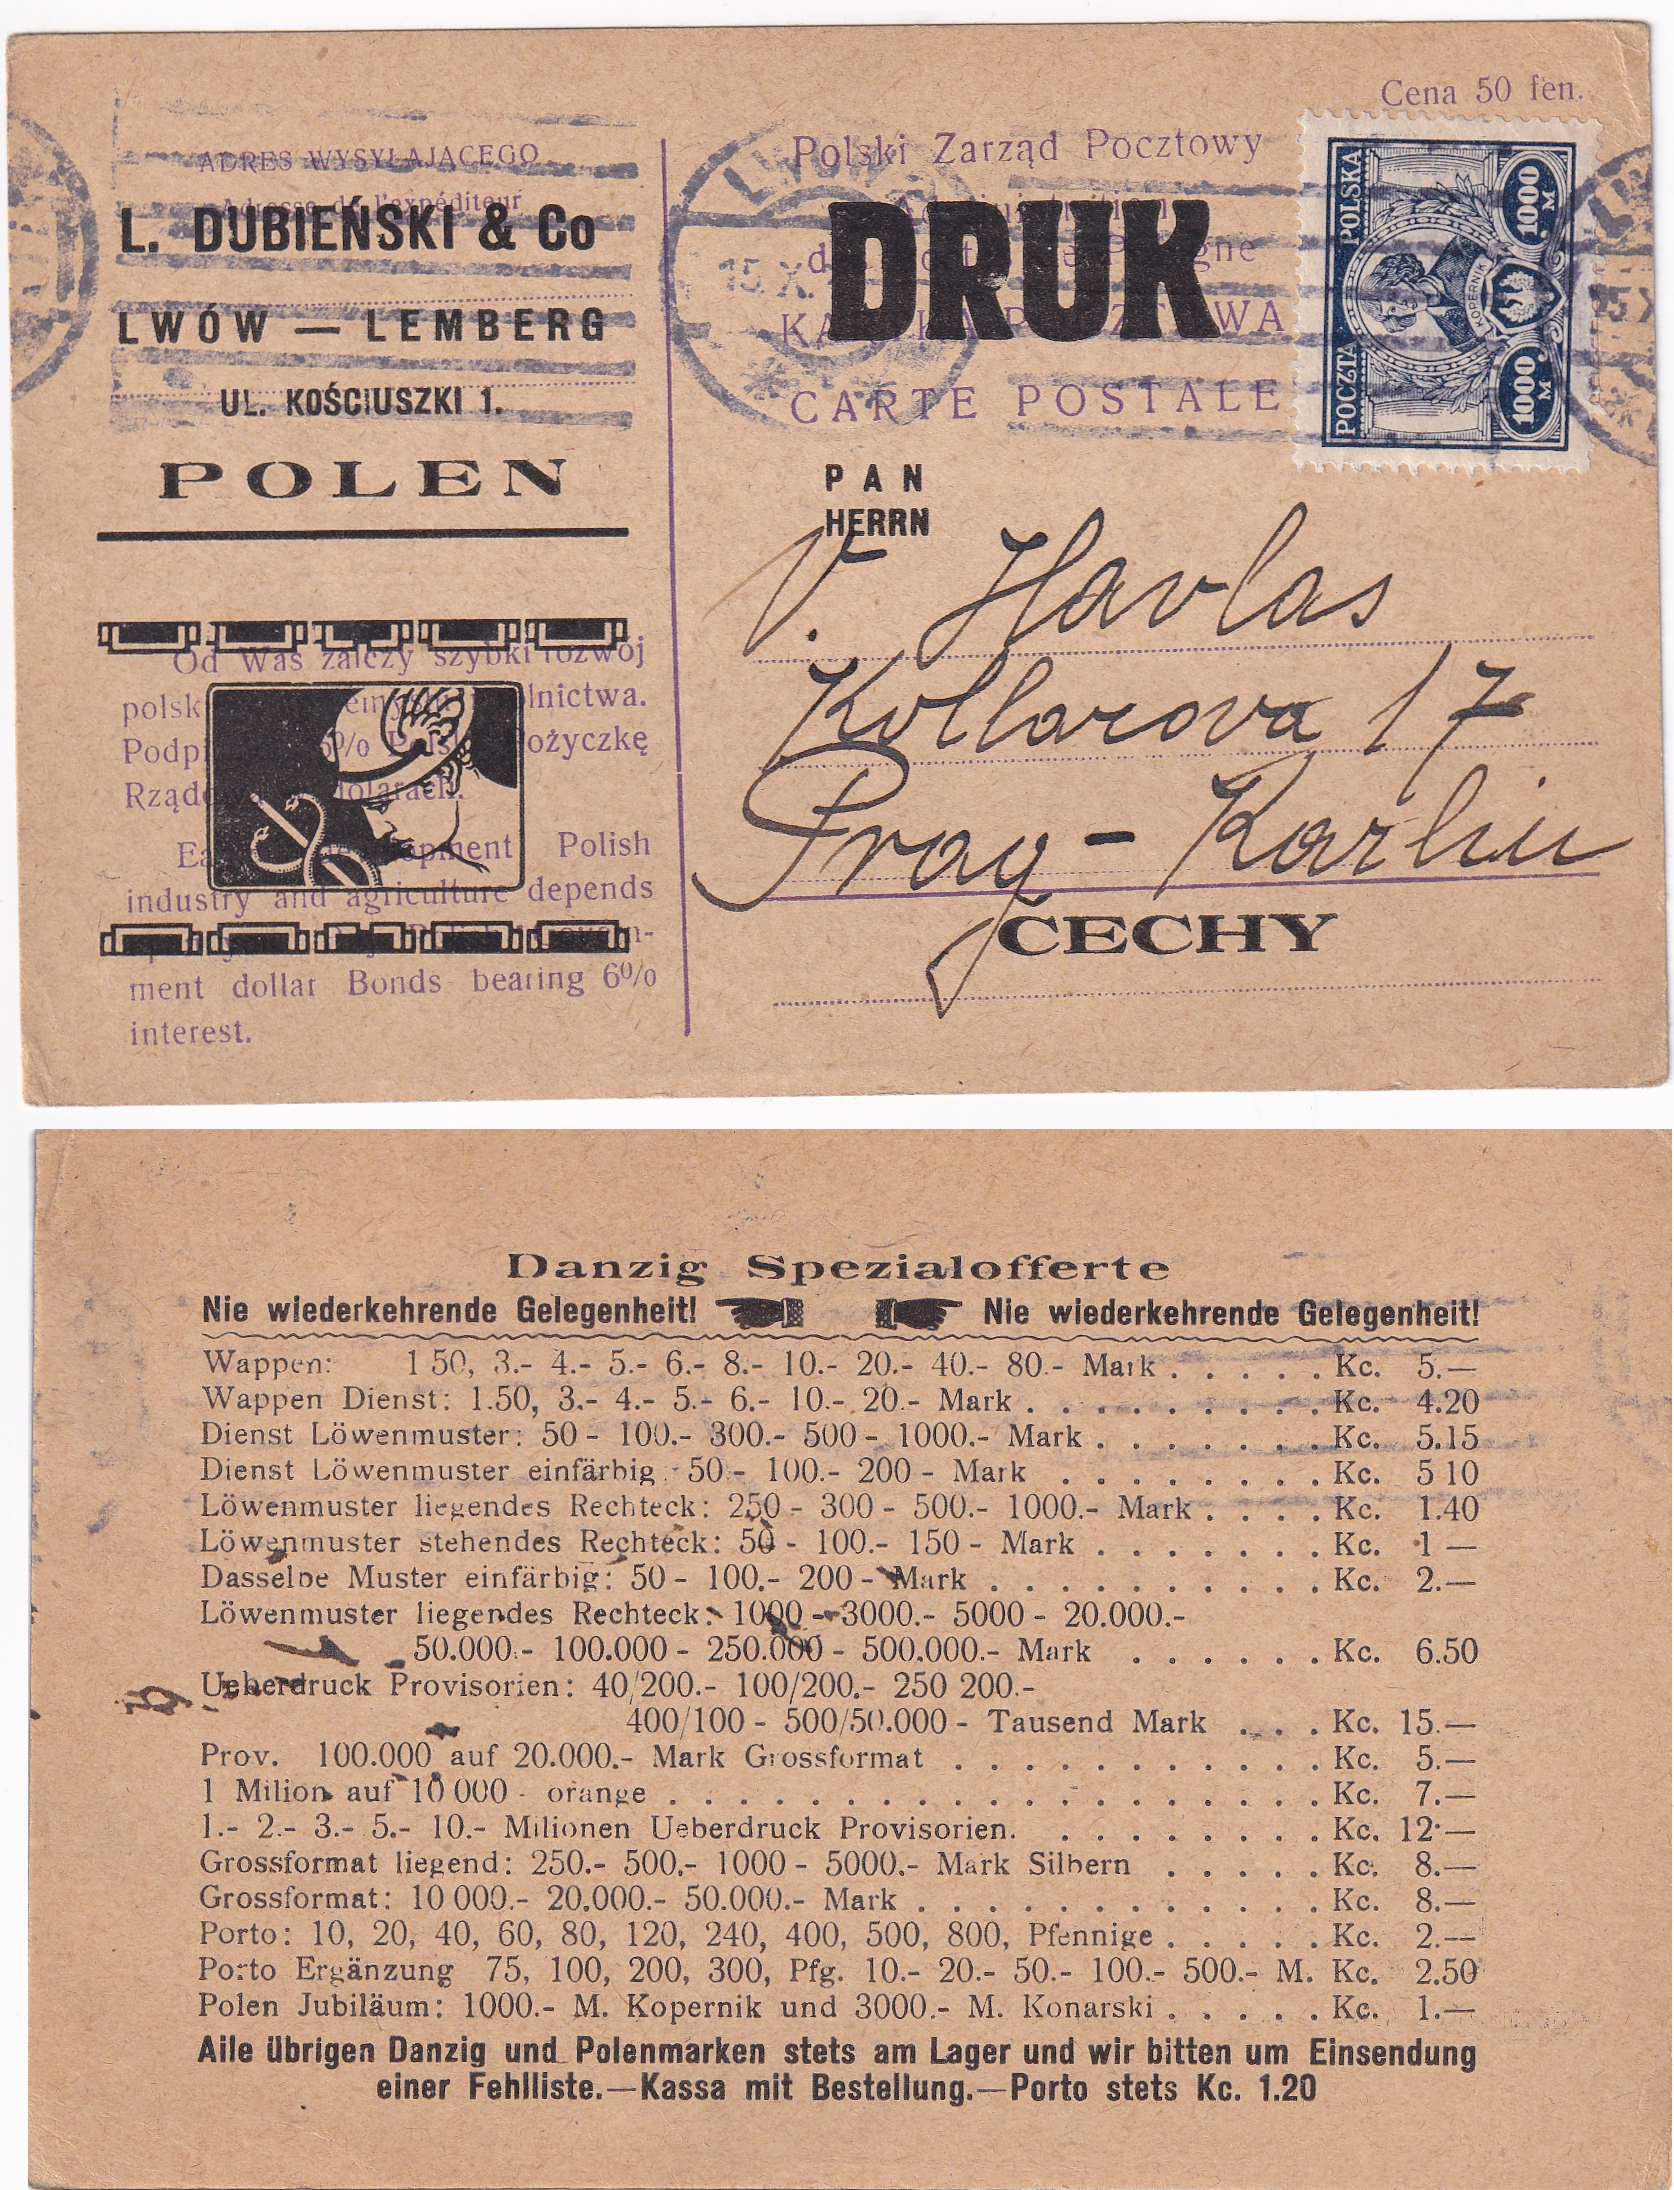 Cena 50 fen.
ADRES WYSYŁAJĄCEGO
Adresse de l'expéditeur
L. DUBIEŃSKI & Co
LWÓW — LEMBERG
UL. KOŚCIUSZKI 1.
POLEN
Od Was zależy szybki rozwój
polsk lnictwa.
Podpi 6% ożyczkę
Rząd dolarach.
Ea opment Polish
industry and agriculture depends
ment dollar Bonds bearing 6%
interest.
Polski Zarząd Pocztowy
DRUK
gne
WA
CARTE POSTALE
LWÓW
15.X.
POCZTA POLSKA
1000 M
1000 M
KOPERNIK
PAN
HERRN
V. Havlas
Kollarova 17
Prag - Karlin
ČECHY
Danzig Spezialofferte
Nie wiederkehrende Gelegenheit! Nie wiederkehrende Gelegenheit!
Wappen: 1 50, 3.- 4.- 5.- 6.- 8.- 10.- 20.- 40.- 80.- Mark . . . . . Kc. 5.—
Wappen Dienst: 1.50, 3.- 4.- 5.- 6.- 10.- 20.- Mark . . . . . . . . . Kc. 4.20
Dienst Löwenmuster: 50 - 100.- 300.- 500 - 1000.- Mark . . . . . . . Kc. 5.15
Dienst Löwenmuster einfärbig: 50 - 100.- 200 - Mark . . . . . . . . Kc. 5 10
Löwenmuster liegendes Rechteck: 250 - 300 - 500.- 1000.- Mark . . . . Kc. 1.40
Löwenmuster stehendes Rechteck: 50 - 100.- 150 - Mark . . . . . . . Kc. 1 —
Dasselbe Muster einfärbig: 50 - 100.- 200 - Mark . . . . . . . . . . Kc. 2.—
Löwenmuster liegendes Rechteck: 1000 - 3000.- 5000 - 20.000.-
50.000.- 100.000 - 250.000 - 500.000.- Mark . . . . . . Kc. 6.50
Ueberdruck Provisorien: 40/200.- 100/200.- 250 200.-
400/100 - 500/50.000 - Tausend Mark . . . Kc. 15.—
Prov. 100.000 auf 20.000.- Mark Grossformat . . . . . . . . . . . Kc. 5.—
1 Milion auf 10 000 - orange . . . . . . . . . . . . . . . . . Kc. 7.—
1.- 2.- 3.- 5.- 10.- Milionen Ueberdruck Provisorien. . . . . . . . . Kc. 12·—
Grossformat liegend: 250.- 500.- 1000 - 5000.- Mark Silbern . . . . . Kc. 8.—
Grossformat: 10 000.- 20.000.- 50.000.- Mark . . . . . . . . . . . . Kc. 8.—
Porto: 10, 20, 40, 60, 80, 120, 240, 400, 500, 800, Pfennige . . . . . Kc. 2.—
Porto Ergänzung 75, 100, 200, 300, Pfg. 10.- 20.- 50.- 100.- 500.- M. Kc. 2.50
Polen Jubiläum: 1000.- M. Kopernik und 3000.- M. Konarski . . . . . Kc. 1.—
Alle übrigen Danzig und Polenmarken stets am Lager und wir bitten um Einsendung
einer Fehlliste.—Kassa mit Bestellung.—Porto stets Kc. 1.20